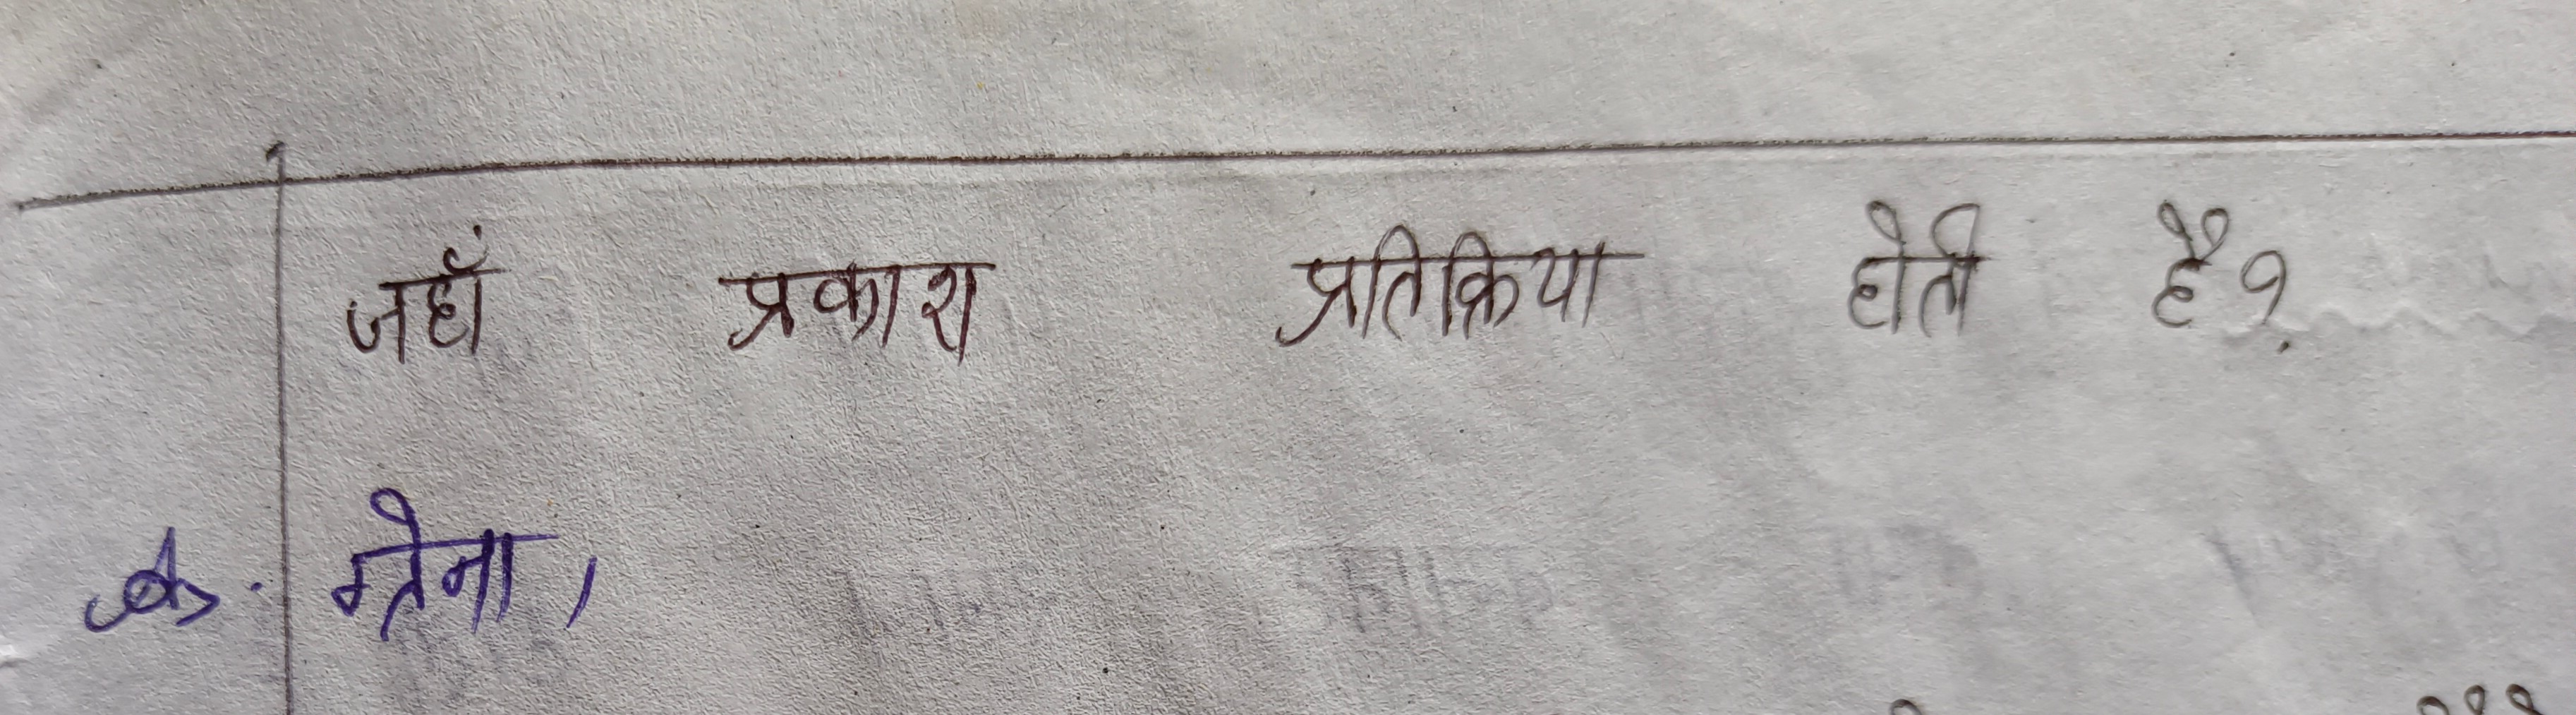 जहाँ प्रकाश प्रतिक्रिया होती है?
A. ग्रेना।